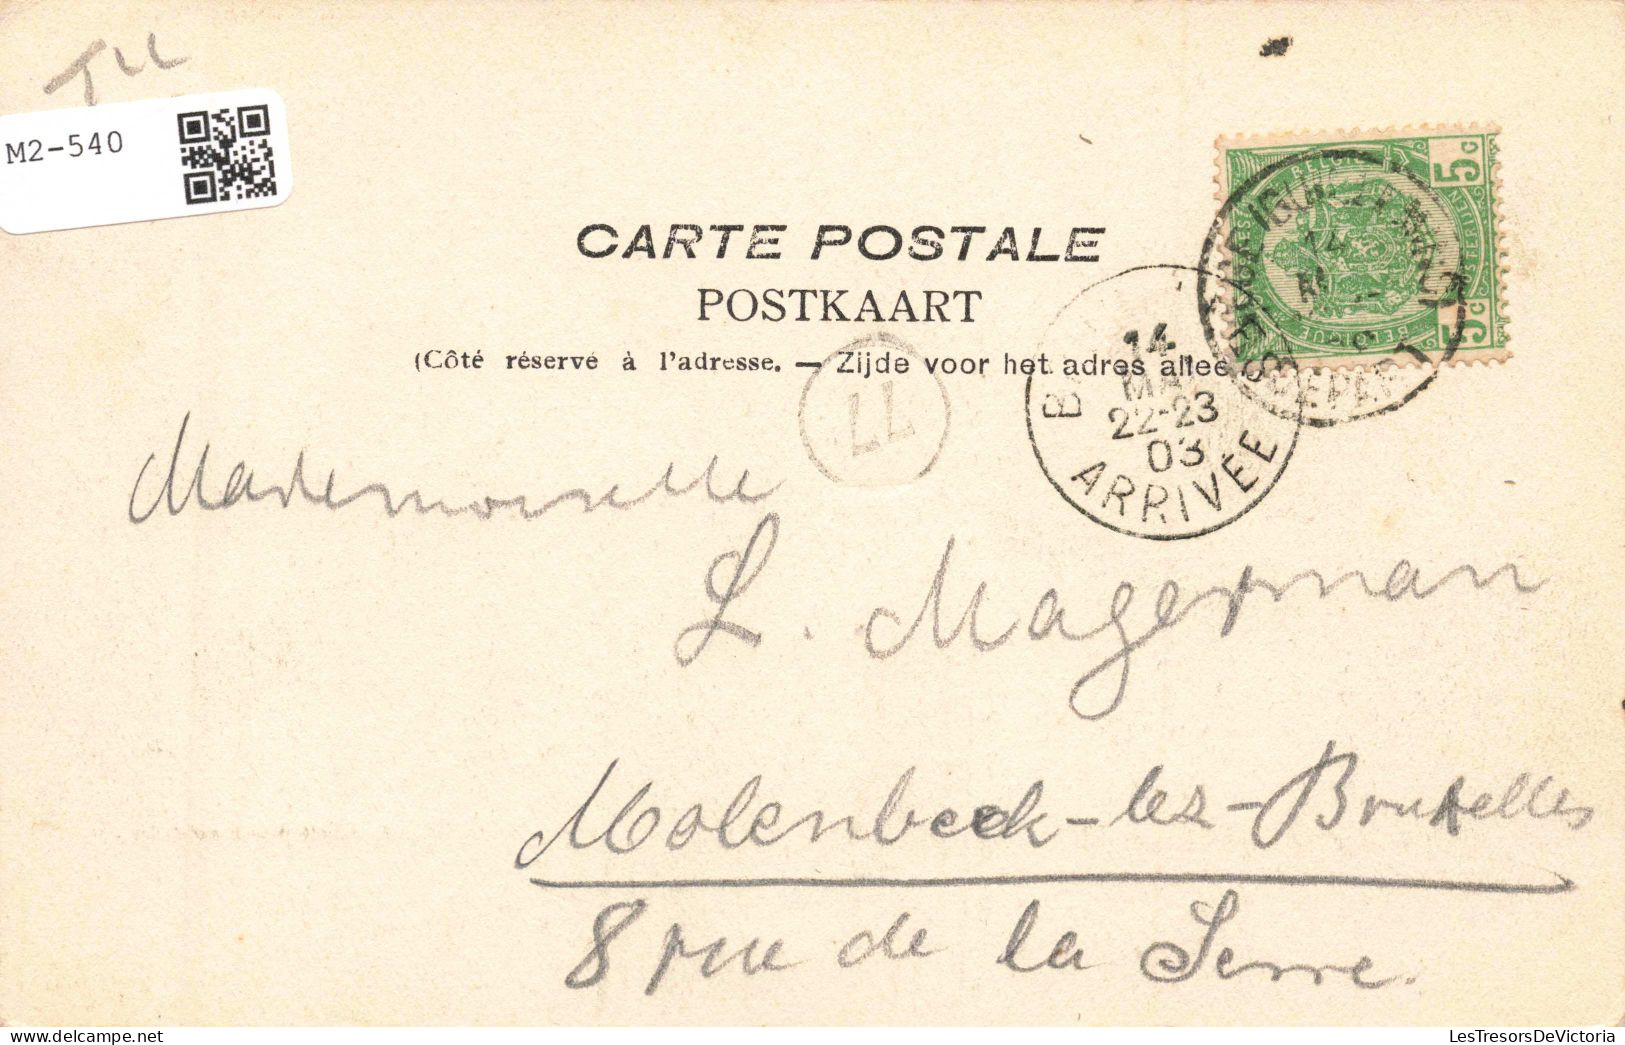 M2-540
CARTE POSTALE
POSTKAART
(Côté réservé à l'adresse. — Zijde voor het adres alleen
5c
5c
14
22-23
03
ARRIVÉE
77
Mademoiselle
L. Magerman
Molenbeek-lez-Bruxelles
8 rue de la Serre.
delcampe.net
LesTresorsDeVictoria